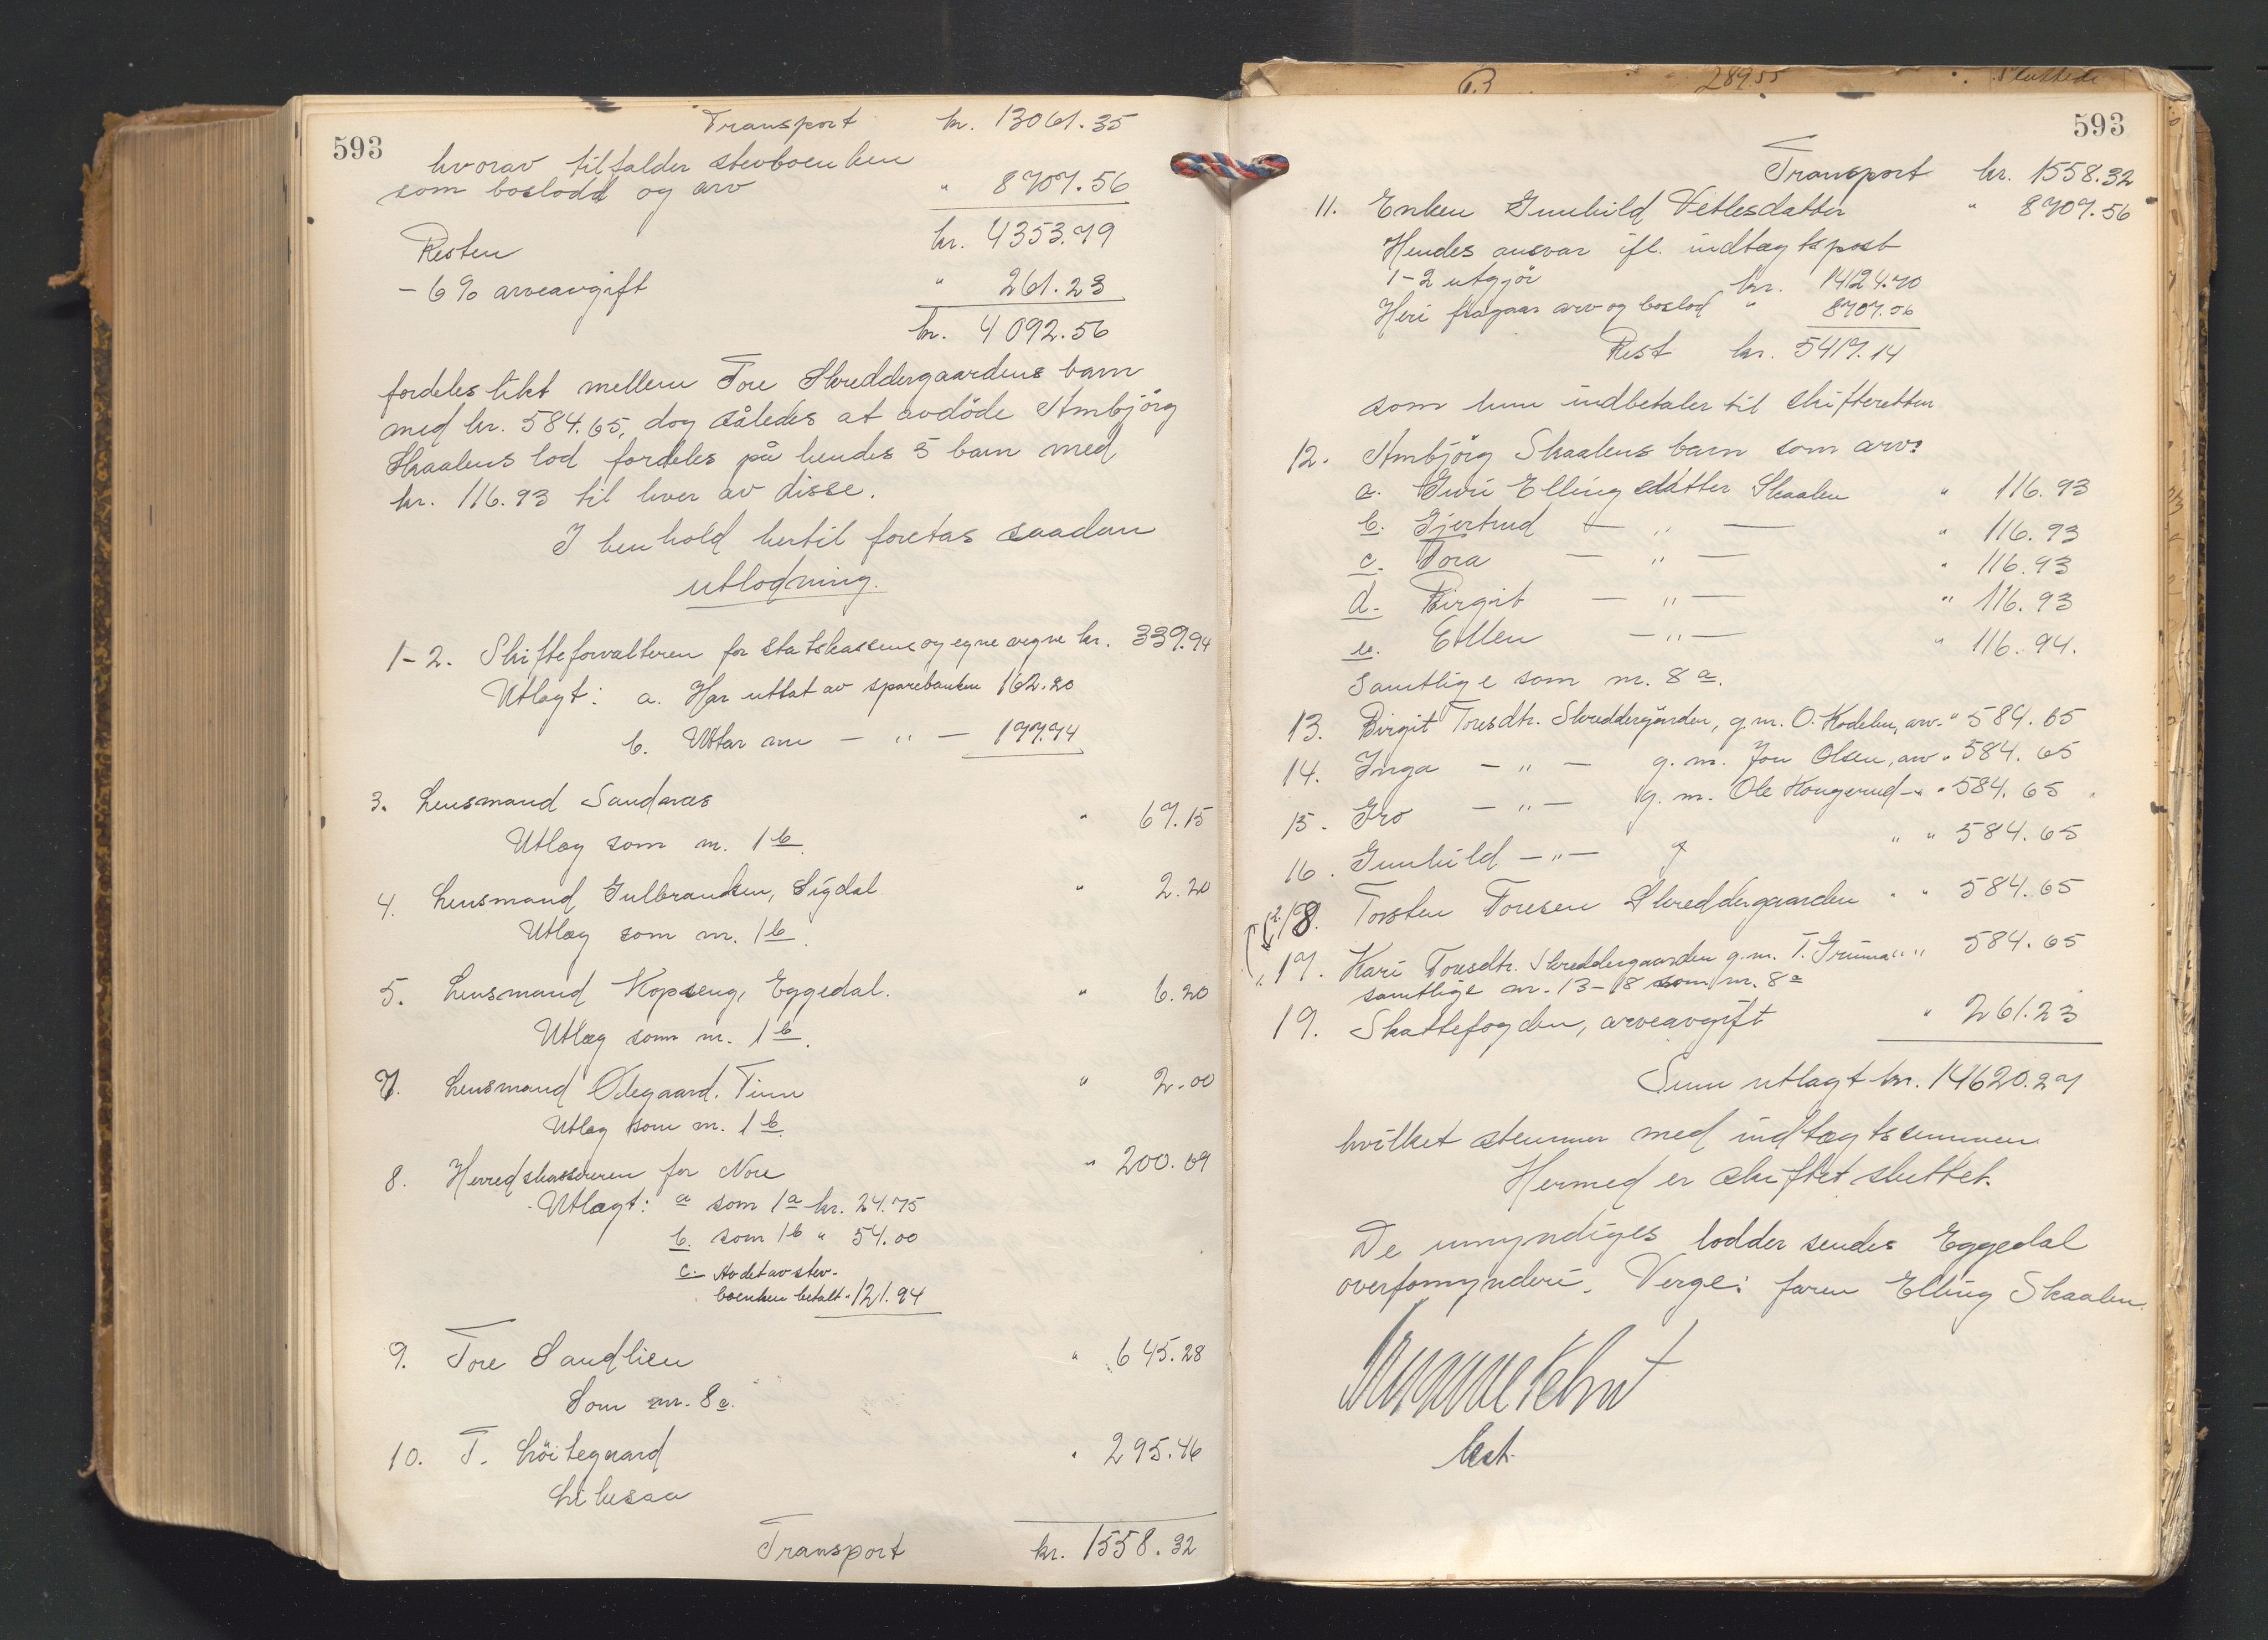 593
Transport kr. 13061.35
hvorav tilfalder stevboenken
som boslodd og arv " 8707.56
Resten kr. 4353.79
- 6 % arveavgift " 261.23
kr. 4092.56
fordeles likt mellem Tore Skreddergaardens barn
med kr. 584.65, dog således at avdöde Ambjörg
Skaalens lod fordeles på hendes 5 barn med
kr. 116.93 til hver av disse.
I henhold hertil foretas saadan
utlodning.
1-2. Skifteforvalteren for statskassens og egne vegne kr. 339.94
Utlagt: a. Har uttat av sparebanken 162.20
b. Uttar nu — " — 177.74
3. Lensmand Sandaas " 67.15
Utlæg som nr. 1 b.
4. Lensmand Gulbransen, Sigdal " 2.20
Utlæg som nr. 1 b.
5. Lensmand Kopseng, Eggedal. " 6.20
Utlæg som nr. 1 b.
7. Lensmand Ødegaard. Tinn " 2.00
Utlæg som nr. 1 b.
8. Herredskassereren for Nore " 200.69
Utlagt: a som 1 a kr. 24.75
b. som 1 b " 54.00
c. Av det av stev-
boenken betalt " 121.94
9. Tore Sandlien " 645.28
Som nr. 8 a.
10. T. Löitegaard " 295.46
Likesaa
Transport kr. 1558.32
289.55 Sluttede
593
Transport kr. 1558.32
11. Enken Gunhild Vetlesdatter " 8707.56
Hendes ansvar ifl. indtægtspost
1-2 utgjör kr. 14124.70
Heri fragaar arv og boslod " 8707.56
Rest kr. 5417.14
som hun indbetaler til skifteretten
12. Ambjörg Skaalens barn som arv:
a. Guri Ellingsdatter Skaalen " 116.93
b. Gjertrud — " — " 116.93
c. Tora — " — " 116.93
d. Birgit — " — " 116.93
e. Ellen — " — " 116.94.
Samtlige som nr. 8 a.
13. Birgit Toresdtr. Skreddergården, g.m. O. Kodelen, arv. " 584.65
14. Inga — " — g.m. Jon Olsen, arv " 584.65
15. Gro — " — g.m. Ole Kongerud - " " 584.65
16. Gunhild — " — g " " 584.65
18. Torsten Toresen Skreddergaarden " " 584.65
17. Kari Toresdtr. Skreddergaarden g.m. T. Grima " " 584.65
samtlige nr. 13-18 som nr. 8 a
19. Skattefogden, arveavgift " 261.23
Sum utlagt kr. 14620.27
hvilket stemmer med indtægtssummen
Hermed er skiftet sluttet.
De umyndiges lodder sendes Eggedal
overformynderi. Verge: faren Elling Skaalen.